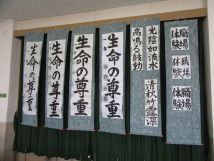 職場
体験
職場
体験
職場
体験
光陰如流水
高鳴る鼓動
清秋竹露深
生命の尊重
生命の尊重
生命の尊重
生命の尊重